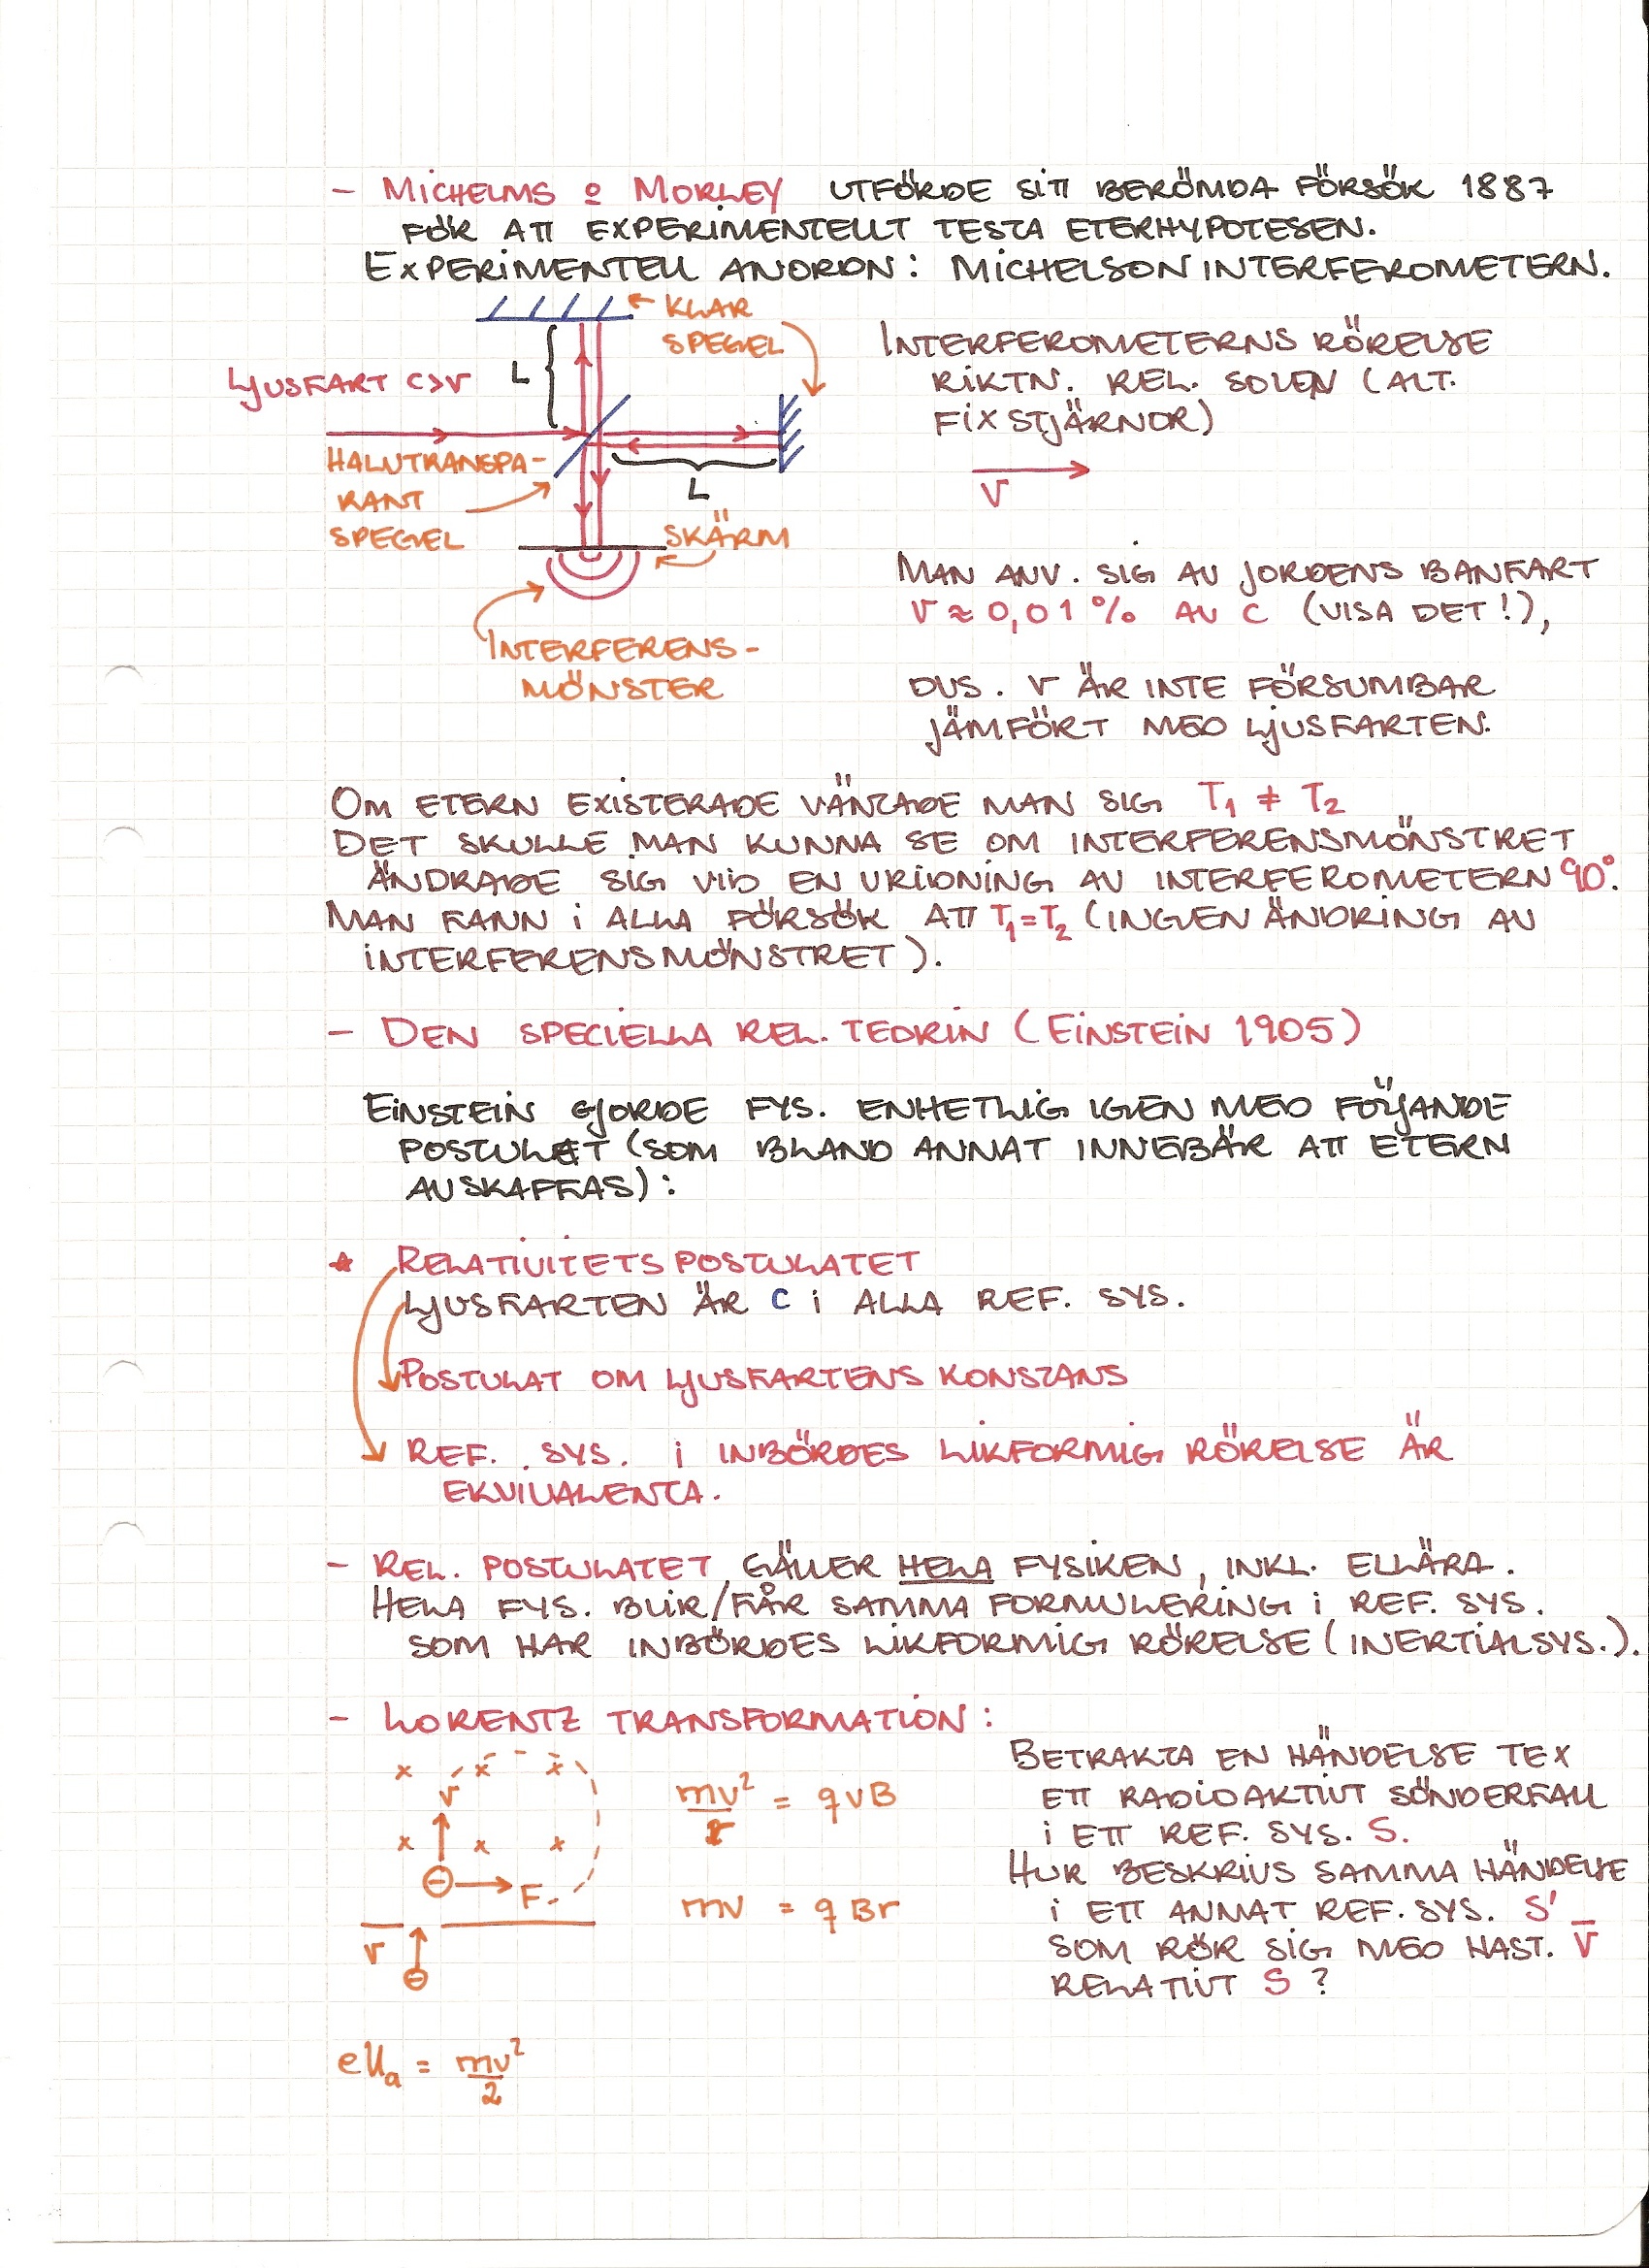 - MICHELMS o MORLEY UTFÖRDE SITT BERÖMDA FÖRSÖK 1887
FÖR ATT EXPERIMENTELLT TESTA ETERHYPOTESEN.
EXPERIMENTELL ANORDN: MICHELSON INTERFEROMETERN.
KLAR
SPEGEL
LJUSFART C>V
L
HALVTRANSPA-
RANT
SPEGEL
L
SKÄRM
INTERFERENS-
MÖNSTER
INTERFEROMETERNS RÖRELSE
RIKTN. REL. SOLEN (ALT.
FIXSTJÄRNOR)
V
MAN ANV. SIG AV JORDENS BANFART
V ≈ 0,01 % AV C (VISA DET!),
DVS. V ÄR INTE FÖRSUMBAR
JÄMFÖRT MED LJUSFARTEN.
OM ETERN EXISTERADE VÄNTADE MAN SIG T₁ ≠ T₂
DET SKULLE MAN KUNNA SE OM INTERFERENSMÖNSTRET
ÄNDRADE SIG VID EN VRIDNING AV INTERFEROMETERN 90°.
MAN FANN I ALLA FÖRSÖK ATT T₁=T₂ (INGEN ÄNDRING AV
INTERFERENSMÖNSTRET).
- DEN SPECIELLA REL. TEORIN (EINSTEIN 1905)
EINSTEIN GJORDE FYS. ENHETLIG IGEN MED FÖLJANDE
POSTULAT (SOM BLAND ANNAT INNEBÄR ATT ETERN
AVSKAFFAS):
* RELATIVITETSPOSTULATET
LJUSFARTEN ÄR C I ALLA REF. SYS.
POSTULAT OM LJUSFARTENS KONSTANS
REF. SYS. I INBÖRDES LIKFORMIG RÖRELSE ÄR
EKVIVALENTA.
- REL. POSTULATET GÄLLER HELA FYSIKEN, INKL. ELLÄRA.
HELA FYS. BLIR/FÅR SAMMA FORMULERING I REF. SYS.
SOM HAR INBÖRDES LIKFORMIG RÖRELSE (INERTIALSYS.).
- LORENTZ TRANSFORMATION:
x x x
v
x x x
⊖ F
v
⊖
mv²/r = qvB
mv = qBr
eUₐ = mv²/2
BETRAKTA EN HÄNDELSE TEX
ETT RADIOAKTIVT SÖNDERFALL
I ETT REF. SYS. S.
HUR BESKRIVS SAMMA HÄNDELSE
I ETT ANNAT REF. SYS. S'
SOM RÖR SIG MED HAST. V̄
RELATIVT S?